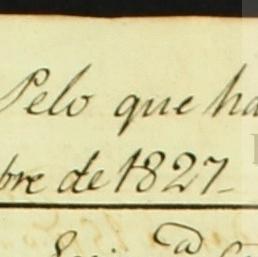 Pelo que ha
bre de 1827